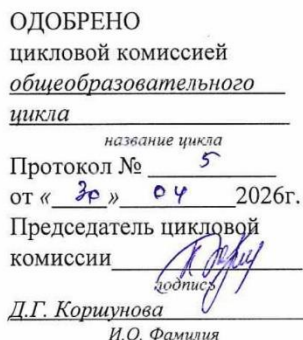 ОДОБРЕНО
цикловой комиссией
общеобразовательного
цикла
название цикла
Протокол № 5
от «30» 04 2026г.
Председатель цикловой
комиссии
подпись
Д.Г. Коршунова
И.О. Фамилия